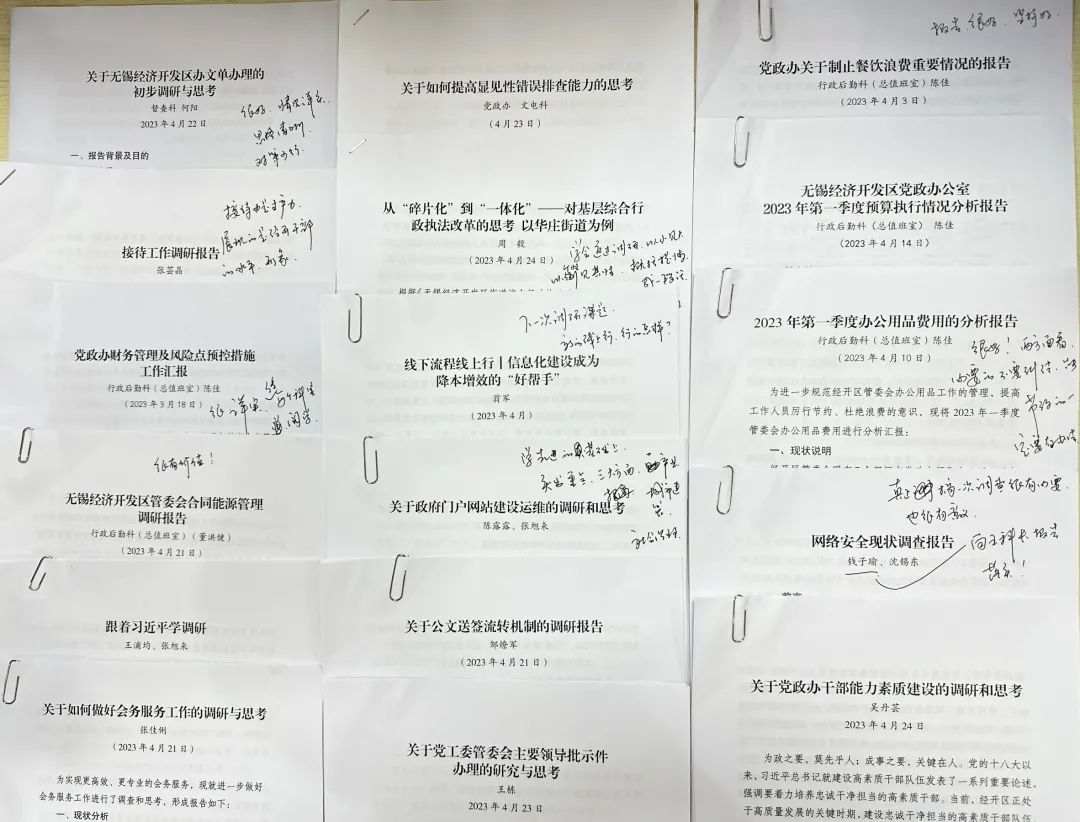 关于无锡经济开发区办文单办理的
初步调研与思考
督查科 何阳
2023 年 4 月 22 日
很好，情况详实
思路清晰
对策可行
一、报告背景及目的
接待工作调研报告
张芸晶
党政办财务管理及风险点预控措施
工作汇报
行政后勤科（总值班室）陈佳
（2023 年 3 月 18 日）
很有价值！
无锡经济开发区管委会合同能源管理
调研报告
行政后勤科（总值班室）（董洪健）
（2023 年 4 月 21 日）
跟着习近平学调研
王浦均、张旭来
关于如何做好会务服务工作的调研与思考
张佳俐
（2023 年 4 月 21 日）
为实现更高效、更专业的会务服务，现就进一步做好
会务服务工作进行了调查和思考，形成报告如下：
一、现状分析
关于如何提高显见性错误排查能力的思考
党政办 文电科
（4 月 23 日）
从“碎片化”到“一体化”——对基层综合行
政执法改革的思考 以华庄街道为例
周 毅
（2023 年 4 月 24 日）
下一次调研课题
线下流程线上行丨信息化建设成为
降本增效的“好帮手”
首军
（2023 年 4 月）
关于政府门户网站建设运维的调研和思考
陈露露、张旭来
关于公文送签流转机制的调研报告
邹燎军
（2023 年 4 月 21 日）
关于党工委管委会主要领导批示件
办理的研究与思考
王栋
（2023 年 4 月 23 日
报告很好
党政办关于制止餐饮浪费重要情况的报告
行政后勤科（总值班室）陈佳
（2023 年 4 月 3 日）
无锡经济开发区党政办公室
2023 年第一季度预算执行情况分析报告
行政后勤科（总值班室） 陈佳
（2023 年 4 月 14 日）
2023 年第一季度办公用品费用的分析报告
行政后勤科（总值班室）陈佳
（2023 年 4 月 10 日）
很好！
为进一步规范经开区管委会办公用品工作的管理、提高
工作人员厉行节约、杜绝浪费的意识，现将 2023 年一季度
管委会办公用品费用进行分析汇报：
一、现状说明
一次调查很有必要
也很有意义
网络安全现状调查报告
钱子瑜、沈锡东
关于党政办干部能力素质建设的调研和思考
吴丹芸
2023 年 4 月 24 日
为政之要，莫先乎人；成事之要，关键在人。党的十八大以
来，习近平总书记就建设高素质干部队伍发表了一系列重要论述，
强调要着力培养忠诚干净担当的高素质干部。当前，经开区正处
于高质量发展的关键时期，建设忠诚干净担当的高素质干部队伍